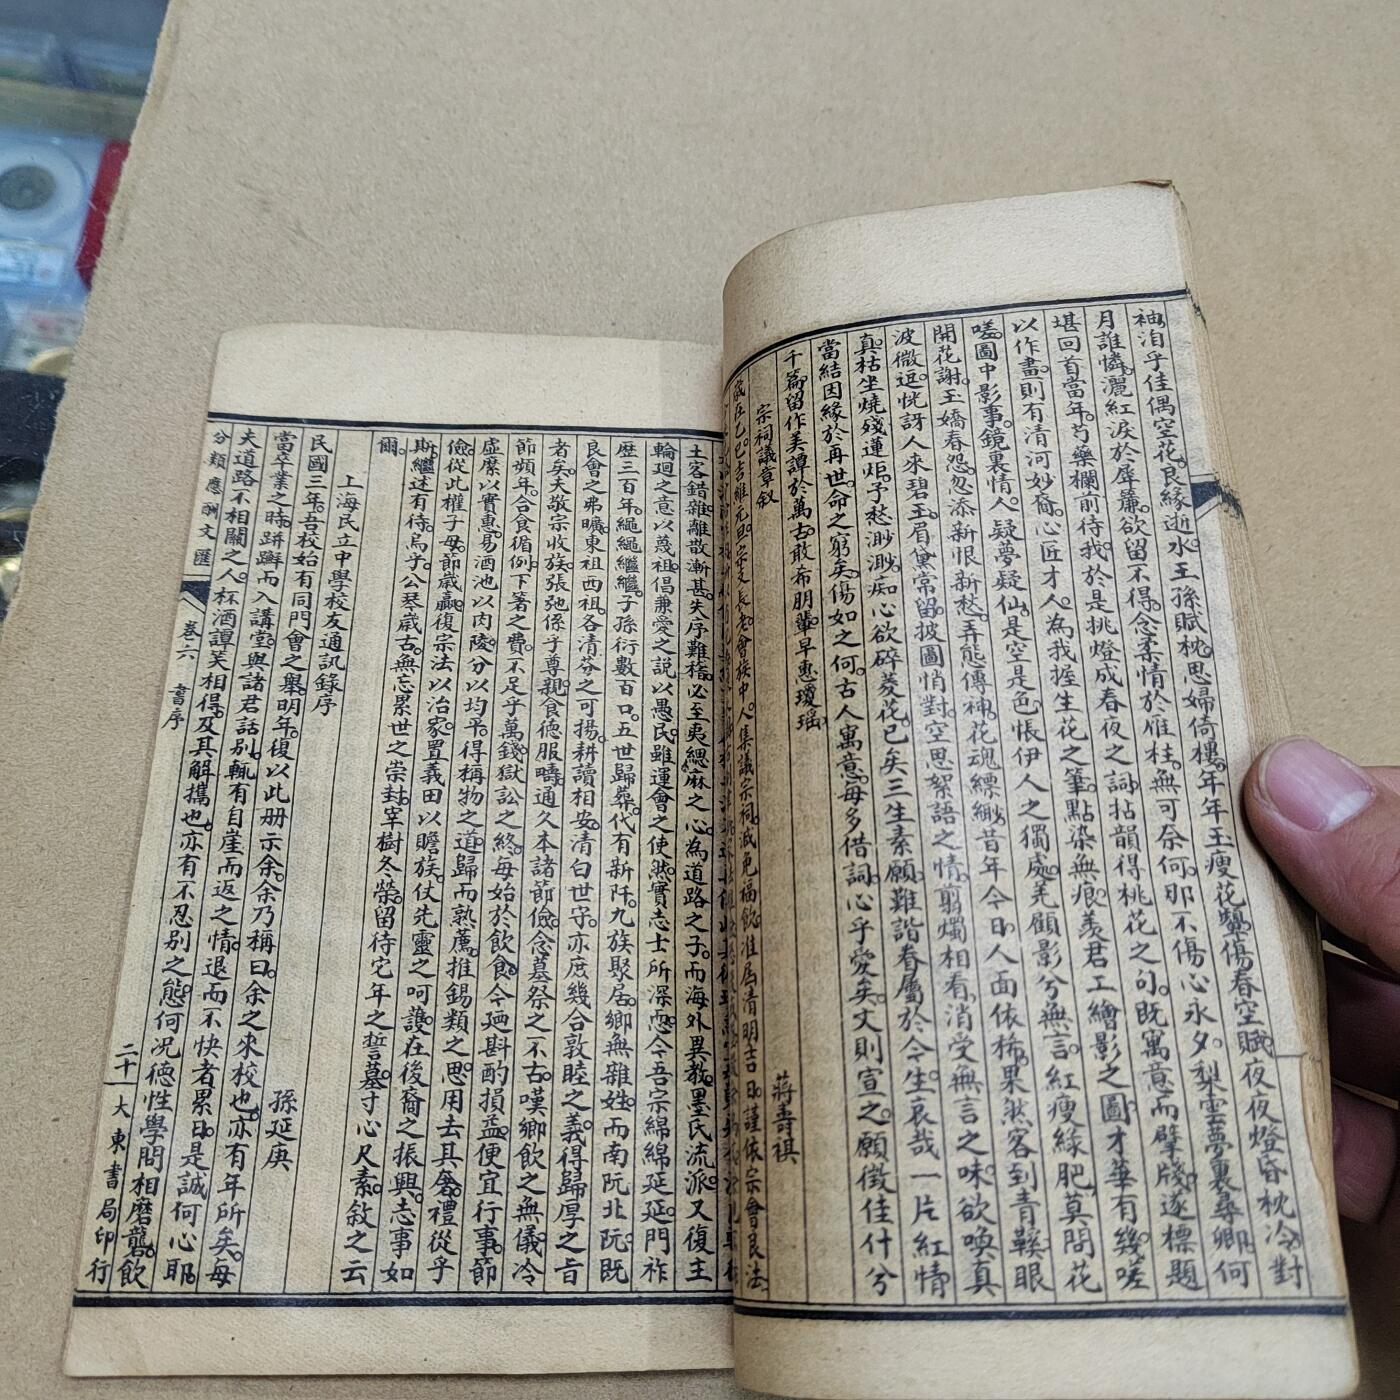 袖洎乎佳偶空花良緣逝水王孫賦枕思婦倚樓年年玉瘦花顰傷春空賦夜夜燈昏枕冷對
月誰憐灑紅淚於犀簾欲留不得念柔情於雁柱無可奈何那不傷心永夕梨雲夢裏尋卿何
堪回首當年芍藥欄前待我於是挑燈成春夜之詞拈韻得桃花之句既寓意而擘牋遂標題
以作畫則有清河妙裔心匠才人為我握生花之筆點染無痕羨君工繪影之圖才華有幾嗟
嗟圖中影事鏡裏情人疑夢疑仙是空是色悵伊人之獨處羌顧影兮無言紅瘦緑肥莫問花
開花謝玉嬌春怨忽添新恨新愁弄態傳神花魂縹緲昔年今日人面依稀果然客到青鞵眼
波微逗恍訝人來碧玉眉黛常留披圖悄對空思絮語之情剪燭相看消受無言之味欲喚真
真枯坐燒殘蓮炬予愁渺渺痴心欲碎菱花已矣三生素願難諧眷屬於今生哀哉一片紅情
當結因緣於再世命之窮矣傷如之何古人寓意每多借詞心乎愛矣文則宣之願徵佳什兮
千篇留作美譚於萬古敢希朋輩早惠瓊瑤
宗祠議章敘 蔣壽祺
歲在乙巳吉維元旦宗支長老會族中人集議宗祠減免福飲准届清明吉日謹依宗會良法
土客錯雜離散漸甚失序難稽必至夷緦麻之心為道路之子而海外異教墨氏流派又復主
輪迴之意以蔑祖倡兼愛之說以愚民雖運會之使然實志士所深恧今吾宗綿綿延延門祚
歷三百年繩繩繼繼子孫衍數百口五世歸葬代有新阡九族聚居鄉無雜姓而南阮北阮既
良會之弗曠東祖西祖各清芬之可揚耕讀相安清白世守亦庶幾合敦睦之義得歸厚之旨
者矣夫敬宗收族張弛係乎尊親食德服疇通久本諸節儉念墓祭之不古嘆鄉飲之無儀冷
節頻年合食循例下箸之費不足乎萬錢獄訟之終每始於飲食今廼斟酌損益便宜行事節
虛縻以實惠易酒池以肉陵分以均平得稱物之道歸而熟薦推錫類之思用去其奢禮從乎
儉從此權子母節歲贏復宗法以治家置義田以贍族仗先靈之呵護在後裔之振興志事如
斯繼述有待烏乎公琴歲古無忘累世之崇封宰樹冬榮留待它年之誓墓寸心尺素敘之云
爾
上海民立中學校友通訊錄序 孫延庚
民國三年吾校始有同門會之舉明年復以此册示余余乃稱曰余之來校也亦有年所矣每
當卒業之時跰躃而入講堂與諸君話別輒有自崖而返之情退而不快者累日是誠何心耶
夫道路不相關之人杯酒譚笑相得及其解攜也亦有不忍別之態何況德性學問相磨礱飲
分類應酬文匯 卷六 書序 二十 大東書局印行